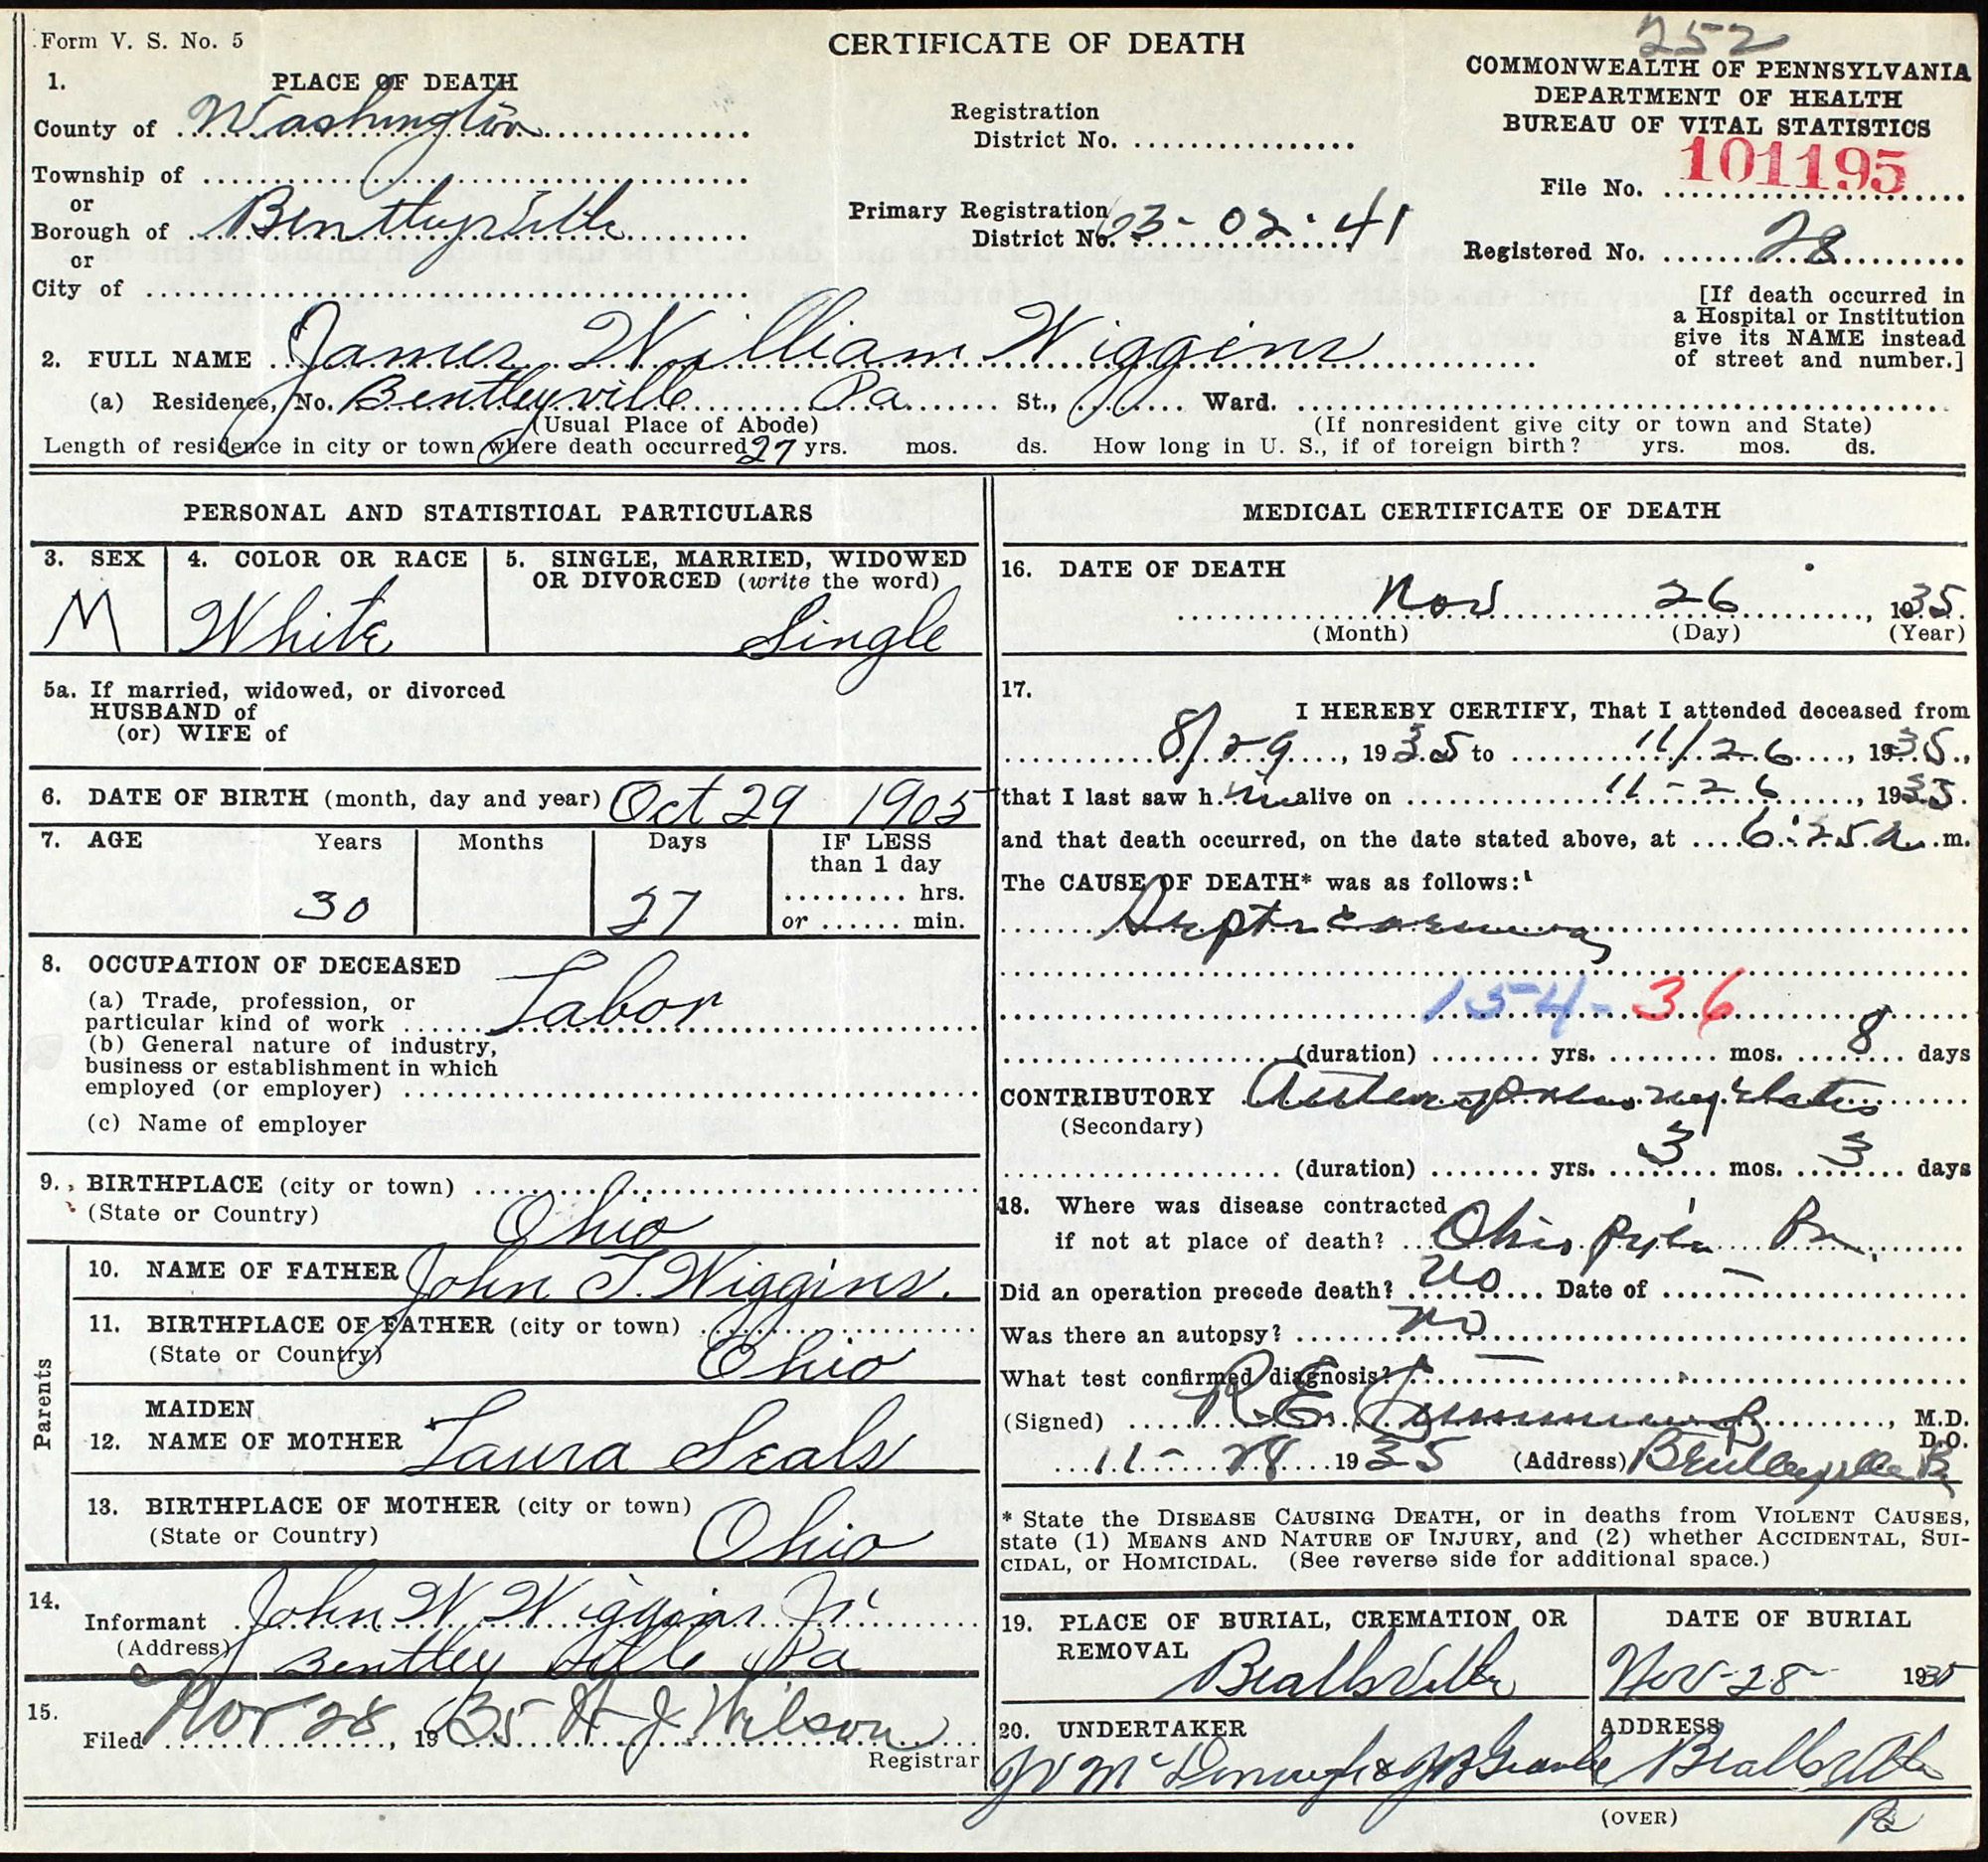 252
Form V. S. No. 5
CERTIFICATE OF DEATH
COMMONWEALTH OF PENNSYLVANIA
DEPARTMENT OF HEALTH
BUREAU OF VITAL STATISTICS
1. PLACE OF DEATH
County of Washington
Township of
or
Borough of Bentleyville
or
City of
Registration
District No.
Primary Registration
District No. 63-02-41
File No. 101195
Registered No. 28
[If death occurred in
a Hospital or Institution
give its NAME instead
of street and number.]
2. FULL NAME James William Wiggins
(a) Residence, No. Bentleyville Pa. St., Ward.
(Usual Place of Abode) (If nonresident give city or town and State)
Length of residence in city or town where death occurred 27 yrs. mos. ds. How long in U. S., if of foreign birth? yrs. mos. ds.
PERSONAL AND STATISTICAL PARTICULARS
3. SEX
M
4. COLOR OR RACE
White
5. SINGLE, MARRIED, WIDOWED
OR DIVORCED (write the word)
Single
5a. If married, widowed, or divorced
HUSBAND of
(or) WIFE of
6. DATE OF BIRTH (month, day and year) Oct 29 1905
7. AGE Years Months Days IF LESS
than 1 day
hrs.
or min.
30 27
8. OCCUPATION OF DECEASED
(a) Trade, profession, or
particular kind of work Labor
(b) General nature of industry,
business or establishment in which
employed (or employer)
(c) Name of employer
9. BIRTHPLACE (city or town)
(State or Country) Ohio
Parents
10. NAME OF FATHER John T. Wiggins.
11. BIRTHPLACE OF FATHER (city or town)
(State or Country) Ohio
MAIDEN
12. NAME OF MOTHER Laura Seals
13. BIRTHPLACE OF MOTHER (city or town)
(State or Country) Ohio
14.
Informant John W. Wiggins Jr
(Address) Bentleyville Pa
15.
Filed Nov 28, 1935 H J Wilson
Registrar
MEDICAL CERTIFICATE OF DEATH
16. DATE OF DEATH
Nov 26, 1935.
(Month) (Day) (Year)
17.
I HEREBY CERTIFY, That I attended deceased from
8/29, 1935 to 11/26, 1935.,
that I last saw him alive on 11-26, 1935.
and that death occurred, on the date stated above, at 6:25 a. m.
The CAUSE OF DEATH* was as follows:
Septicaemia
154-36
(duration) yrs. mos. 8 days
CONTRIBUTORY
(Secondary)
(duration) yrs. 3 mos. 3 days
18. Where was disease contracted
if not at place of death? Ohio Pyle Pa.
Did an operation precede death? no Date of —
Was there an autopsy? no
What test confirmed diagnosis? —
(Signed) R. E., M.D.
D.O.
11-28 1935 (Address) Bentleyville Pa
* State the DISEASE CAUSING DEATH, or in deaths from VIOLENT CAUSES,
state (1) MEANS AND NATURE OF INJURY, and (2) whether ACCIDENTAL, SUI-
CIDAL, or HOMICIDAL. (See reverse side for additional space.)
19. PLACE OF BURIAL, CREMATION OR
REMOVAL
Beallsville
DATE OF BURIAL
Nov-28- 1935
20. UNDERTAKER
ADDRESS
Beallsville
Pa
(OVER)